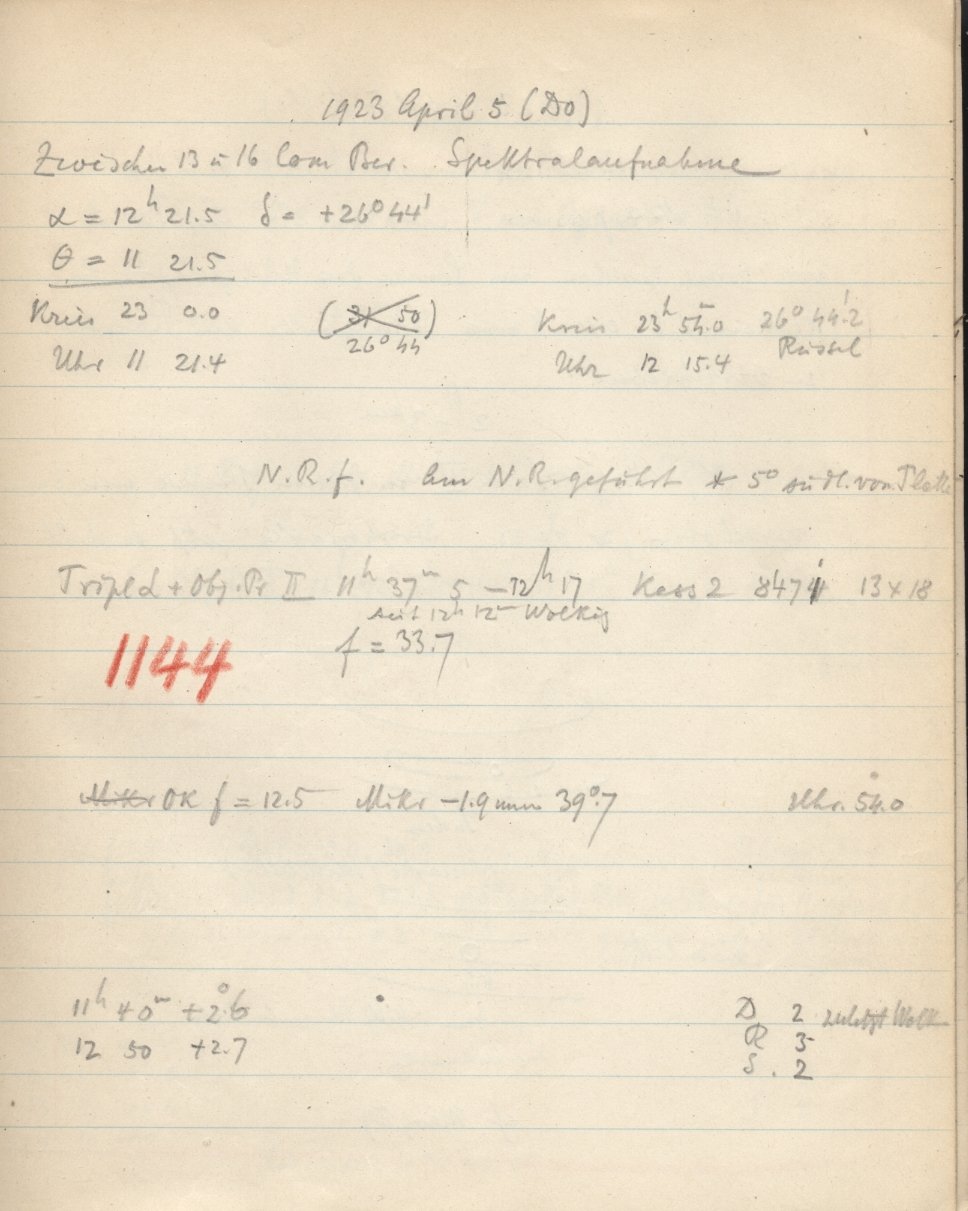 1923 April 5 (Do)
Zwischen 13 u 16 Com Ber. Spektralaufnahme
α = 12ʰ 21.5 δ = +26° 44'
θ = 11 21.5
Kreis 23 0.0 (31 50) Kreis 23ʰ 54.0 26° 44.'2
26° 44 Russel
Uhr 11 21.4 Uhr 12 15.4
N.R.f. Am N.R. geführt * 5° südl. von Platte
Tripl α + Obj. Pr II 11ʰ 37ᵐ 5 – 12ʰ 17 Kass 2 8474 13 x 18
seit 12ʰ 12ᵐ Wolkig
1144 f = 33.7
Mikr OK f = 12.5 Mikr –1.9 mm 39°.7 54.0
11ʰ 40ᵐ +2.°6 D 2 zuletzt Wolk
12 50 +2.7 R 3
S. 2